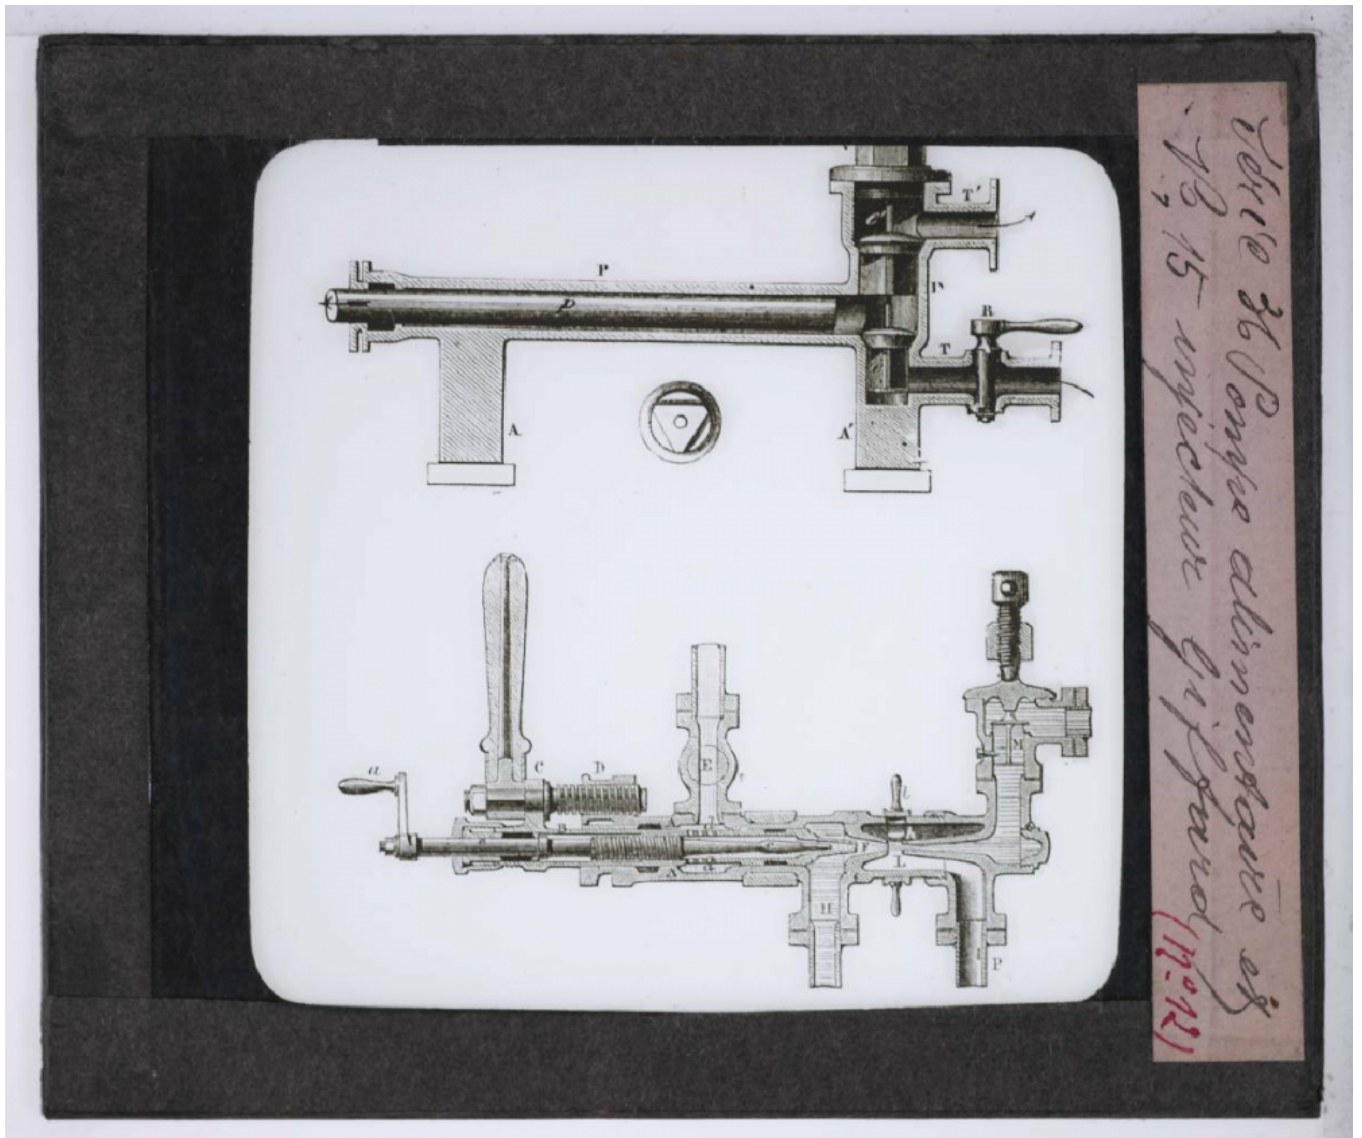 Série H Pompe alimentaire et
N° 15 injecteur Giffard
(N° 12)
T'
P
p
R
T
A
A'
a
C
D
E
M
A
L
H
P